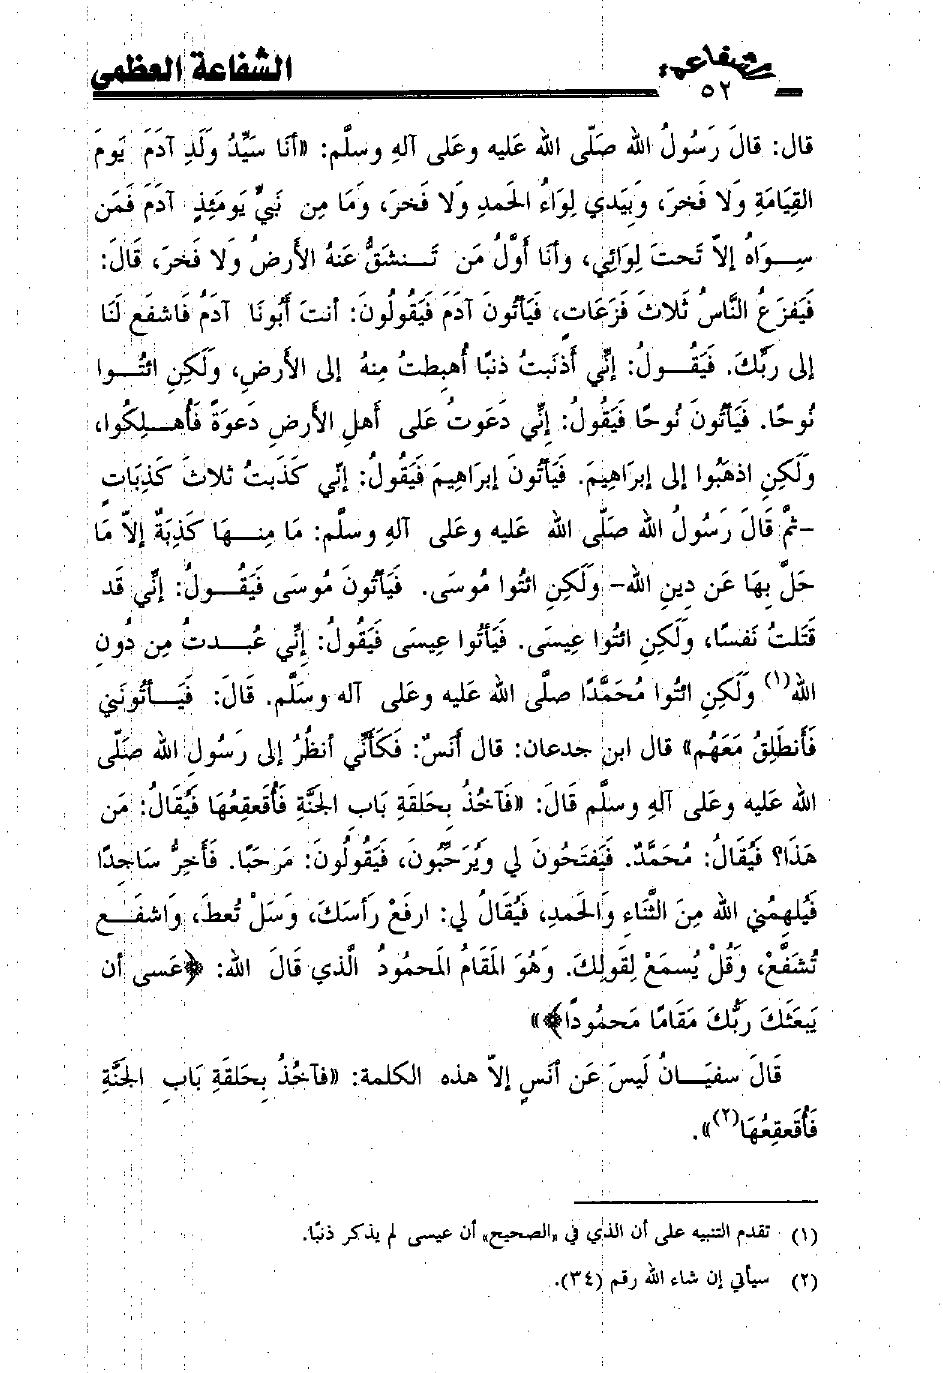 الشفاعة
٥٢
الشفاعة العظمى
قال: قالَ رَسُولُ الله صَلّى الله عَليه وعَلى آلهِ وسلَّم: «أنَا سَيِّدُ ولَدِ آدَمَ يَومَ
القِيَامَةِ وَلا فَخرَ، وَبِيَدي لِوَاءُ الحَمدِ وَلا فَخرَ، وَمَا مِن نَبيٍّ يَومَئِذٍ آدَمَ فَمَن
سِوَاهُ إلاّ تَحتَ لِوَائِي، وأنَا أوَّلُ مَن تَـنشَقُّ عَنهُ الأَرضُ وَلا فَخرَ، قَالَ:
فَيَفزَعُ النَّاسُ ثَلاثَ فَزَعَاتٍ، فَيَأتُونَ آدَمَ فَيَقُولُونَ: أنتَ أَبُونَا آدَمُ فَاشفَع لَنَا
إلى رَبِّكَ. فَيَقُـولُ: إنِّي أَذنَبتُ ذنبًا أُهبِطتُ مِنهُ إلى الأَرضِ، ولَكِنِ ائتُـوا
نُوحًا. فَيَأتُونَ نُوحًا فَيَقُولُ: إنِّي دَعَوتُ عَلى أهلِ الأَرضِ دَعوَةً فَأُهلِكُوا،
ولَكِنِ اذهَبُوا إلى إبرَاهِيمَ. فَيَأتُونَ إبرَاهِيمَ فَيَقُولُ: إنّي كَذَبتُ ثلاثَ كَذِبَاتٍ
-ثُمَّ قَالَ رَسُولُ الله صَلَّى الله عَليه وعَلى آلهِ وسلَّم: مَا مِنـهَا كَذِبَةٌ إلاّ مَا
حَلَّ بِهَا عَن دِينِ الله- ولَكِنِ ائتُوا مُوسَى. فَيَأتُونَ مُوسَى فَيَقُـولُ: إنِّي قَد
قَتَلتُ نَفسًا، ولَكِنِ ائتُوا عِيسَى. فَيَأتُوا عِيسَى فَيَقُولُ: إنِّي عُبـدتُ مِن دُونِ
الله(١) ولَكِنِ ائتُوا مُحَمَّدًا صلَّى الله عَليه وعَلى آله وسَلَّم. قَالَ: فَيَـأتُونَني
فَأَنطَلِقُ مَعَهُم» قال ابن جدعان: قال أنَسٌ: فَكَأَنِّي أنظُرُ إلى رَسُولِ الله صَلّى
الله عَليه وعَلى آلهِ وسلَّم قَالَ: «فَآخُذُ بِحَلقَةِ بَابِ الجَنَّةِ فَأُقَعقِعُهَا فَيُقَالُ: مَن
هَذَا؟ فَيُقَالُ: مُحَمَّدٌ. فَيَفتَحُون لي ويُرَحِّبُون، فَيَقُولُونَ: مَرحَبًا. فَأَخِرُّ سَاجِدًا
فَيُلهِمُني الله مِنَ الثَّنَاءِ وَالحَمدِ، فَيُقَالُ لي: ارفَعْ رَأسَكَ، وَسَلْ تُعطَ، وَاشفَـع
تُشَفَّعْ، وَقُلْ يُسمَعْ لِقَولِكَ. وَهُوَ المَقَامُ المَحمُودُ الَّذي قَالَ الله: ﴿عَسى أن
يَبعَثَكَ رَبُّكَ مَقَامًا مَحمُودًا﴾»
قَالَ سفيَـانُ لَيسَ عَن أنَسٍ إلاّ هذه الكلمة: «فآخُذُ بِحَلقَةِ بَابِ الجَنَّةِ
فَأُقَعقِعُهَا(٢)».
(١) تقدم التنبيه على أن الذي في «الصحيح» أن عيسى لم يذكر ذنبًا.
(٢) سيأتي إن شاء الله رقم (٣٤).